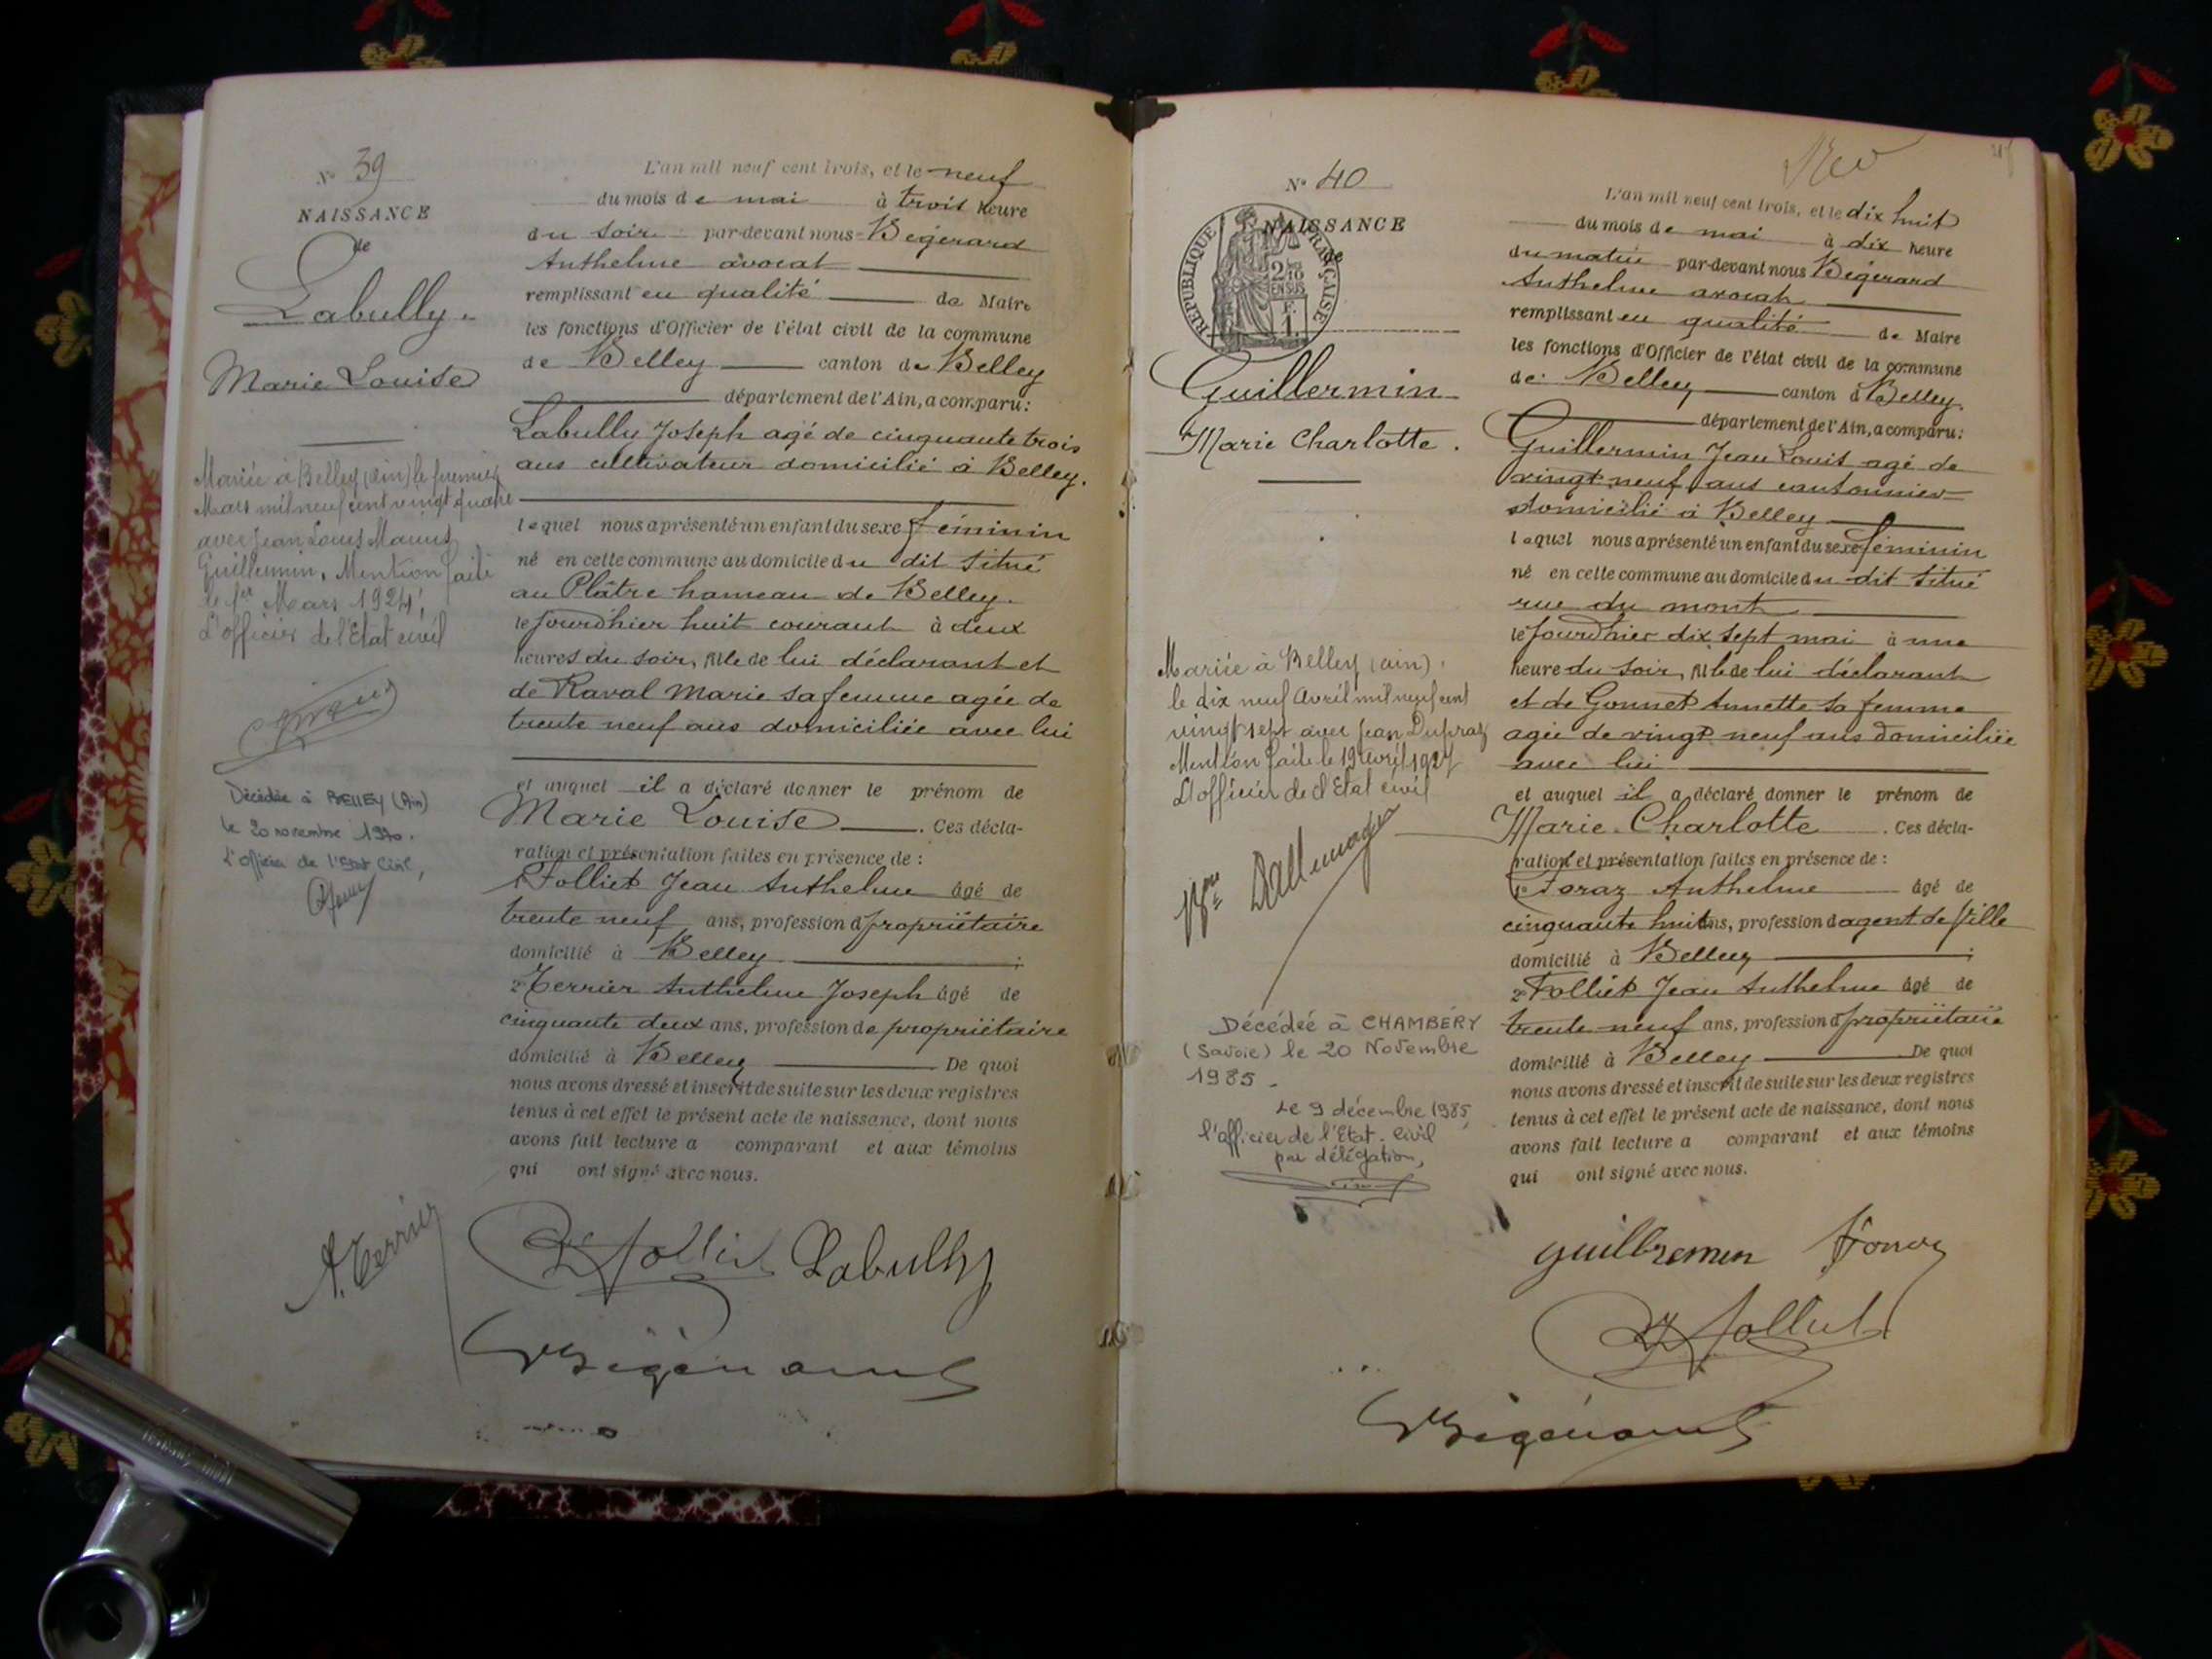 N° 39
NAISSANCE
de
Labully
Marie Louise
Mariée à Belley (Ain) le premier
Mars mil neuf cent vingt quatre
avec Jean Louis Marius
Guillermin. Mention faite
le 1er Mars 1924,
L'officier de l'Etat civil
Décédée à BELLEY (Ain)
le 20 novembre 1970.
L'officier de l'Etat Civil,
L'an mil neuf cent trois, et le neuf
du mois de mai à trois heure
du soir par-devant nous Bégerard
Anthelme avocat
remplissant en qualité de Maire
les fonctions d'Officier de l'état civil de la commune
de Belley canton de Belley
département de l'Ain, a comparu:
Labully Joseph agé de cinquante trois
ans cultivateur domicilié à Belley.
lequel nous a présenté un enfant du sexe féminin
né en cette commune au domicile du dit situé
au Plâtre hameau de Belley.
le jourd'hier huit courant à deux
heures du soir, fille de lui déclarant et
de Raval Marie sa femme agée de
trente neuf ans domiciliée avec lui
et auquel il a déclaré donner le prénom de
Marie Louise. Ces décla-
ration et présentation faites en présence de :
1° Folliet Jean Anthelme âgé de
trente neuf ans, profession d propriétaire
domicilié à Belley ;
2° Terrier Anthelme Joseph âgé de
cinquante deux ans, profession de propriétaire
domicilié à Belley De quoi
nous avons dressé et inscrit de suite sur les deux registres
tenus à cet effet le présent acte de naissance, dont nous
avons fait lecture a comparant et aux témoins
qui ont signé avec nous.
A. Terrier
Folliet Labully
Bégerard
N° 40
NAISSANCE
de
REPUBLIQUE FRANÇAISE
2/10
EN SUS
F.
1.
Guillermin
Marie Charlotte.
Mariée à Belley (Ain),
le dix neuf Avril mil neuf cent
vingt sept avec Jean Dupraz
Mention faite le 19 avril 1927
L'officier de l'Etat civil
Dallemagne
Décédée à CHAMBÉRY
(Savoie) le 20 Novembre
1985.
Le 9 décembre 1985,
l'officier de l'Etat. Civil
par délégation,
L'an mil neuf cent trois, et le dix huit
du mois de mai à dix heure
du matin par-devant nous Bégerard
Anthelme avocat
remplissant en qualité de Maire
les fonctions d'Officier de l'état civil de la commune
de Belley canton d Belley.
département de l'Ain, a comparu:
Guillermin Jean Louis agé de
vingt neuf ans cantonnier
domicilié à Belley
lequel nous a présenté un enfant du sexe féminin
né en cette commune au domicile du dit situé
rue du mont
le jourd'hier dix sept mai à une
heure du soir, fille de lui déclarant
et de Gonnet Annette sa femme
agée de vingt neuf ans domiciliée
avec lui
et auquel il a déclaré donner le prénom de
Marie Charlotte. Ces décla-
ration et présentation faites en présence de :
1° Foraz Anthelme âgé de
cinquante huit ans, profession d agent de ville
domicilié à Belley ;
2° Folliet Jean Anthelme âgé de
trente neuf ans, profession d propriétaire
domicilié à Belley De quoi
nous avons dressé et inscrit de suite sur les deux registres
tenus à cet effet le présent acte de naissance, dont nous
avons fait lecture a comparant et aux témoins
qui ont signé avec nous.
guillremen Foraz
Folliet
Bégerard